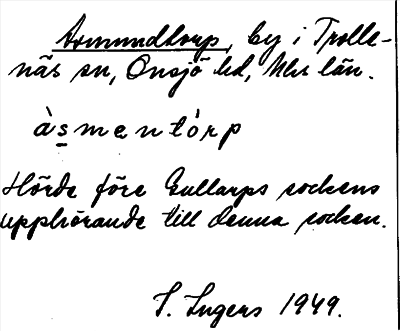 Asmundtorp, by i Trolle-
näs sn, Onsjö hd, Mlm län.
às̱mentòrp
Hörde före Gullarps sockens
upphörande till denna socken.
I. Ingers 1949.